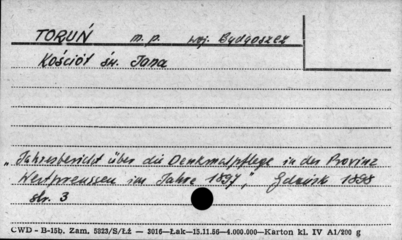 TORUŃ m. p. woj. Bydgoszcz
Kościół św. Jana
"Jahresbericht über die Denkmalpflege in der Provinz
Westpreussen im Jahre 1897", Gdańsk 1898
str. 3
CWD - B-15b. Zam. 5823/S/Łż — 3016—Łak—15.11.56—4.000.000—Karton kl. IV A1/200 g